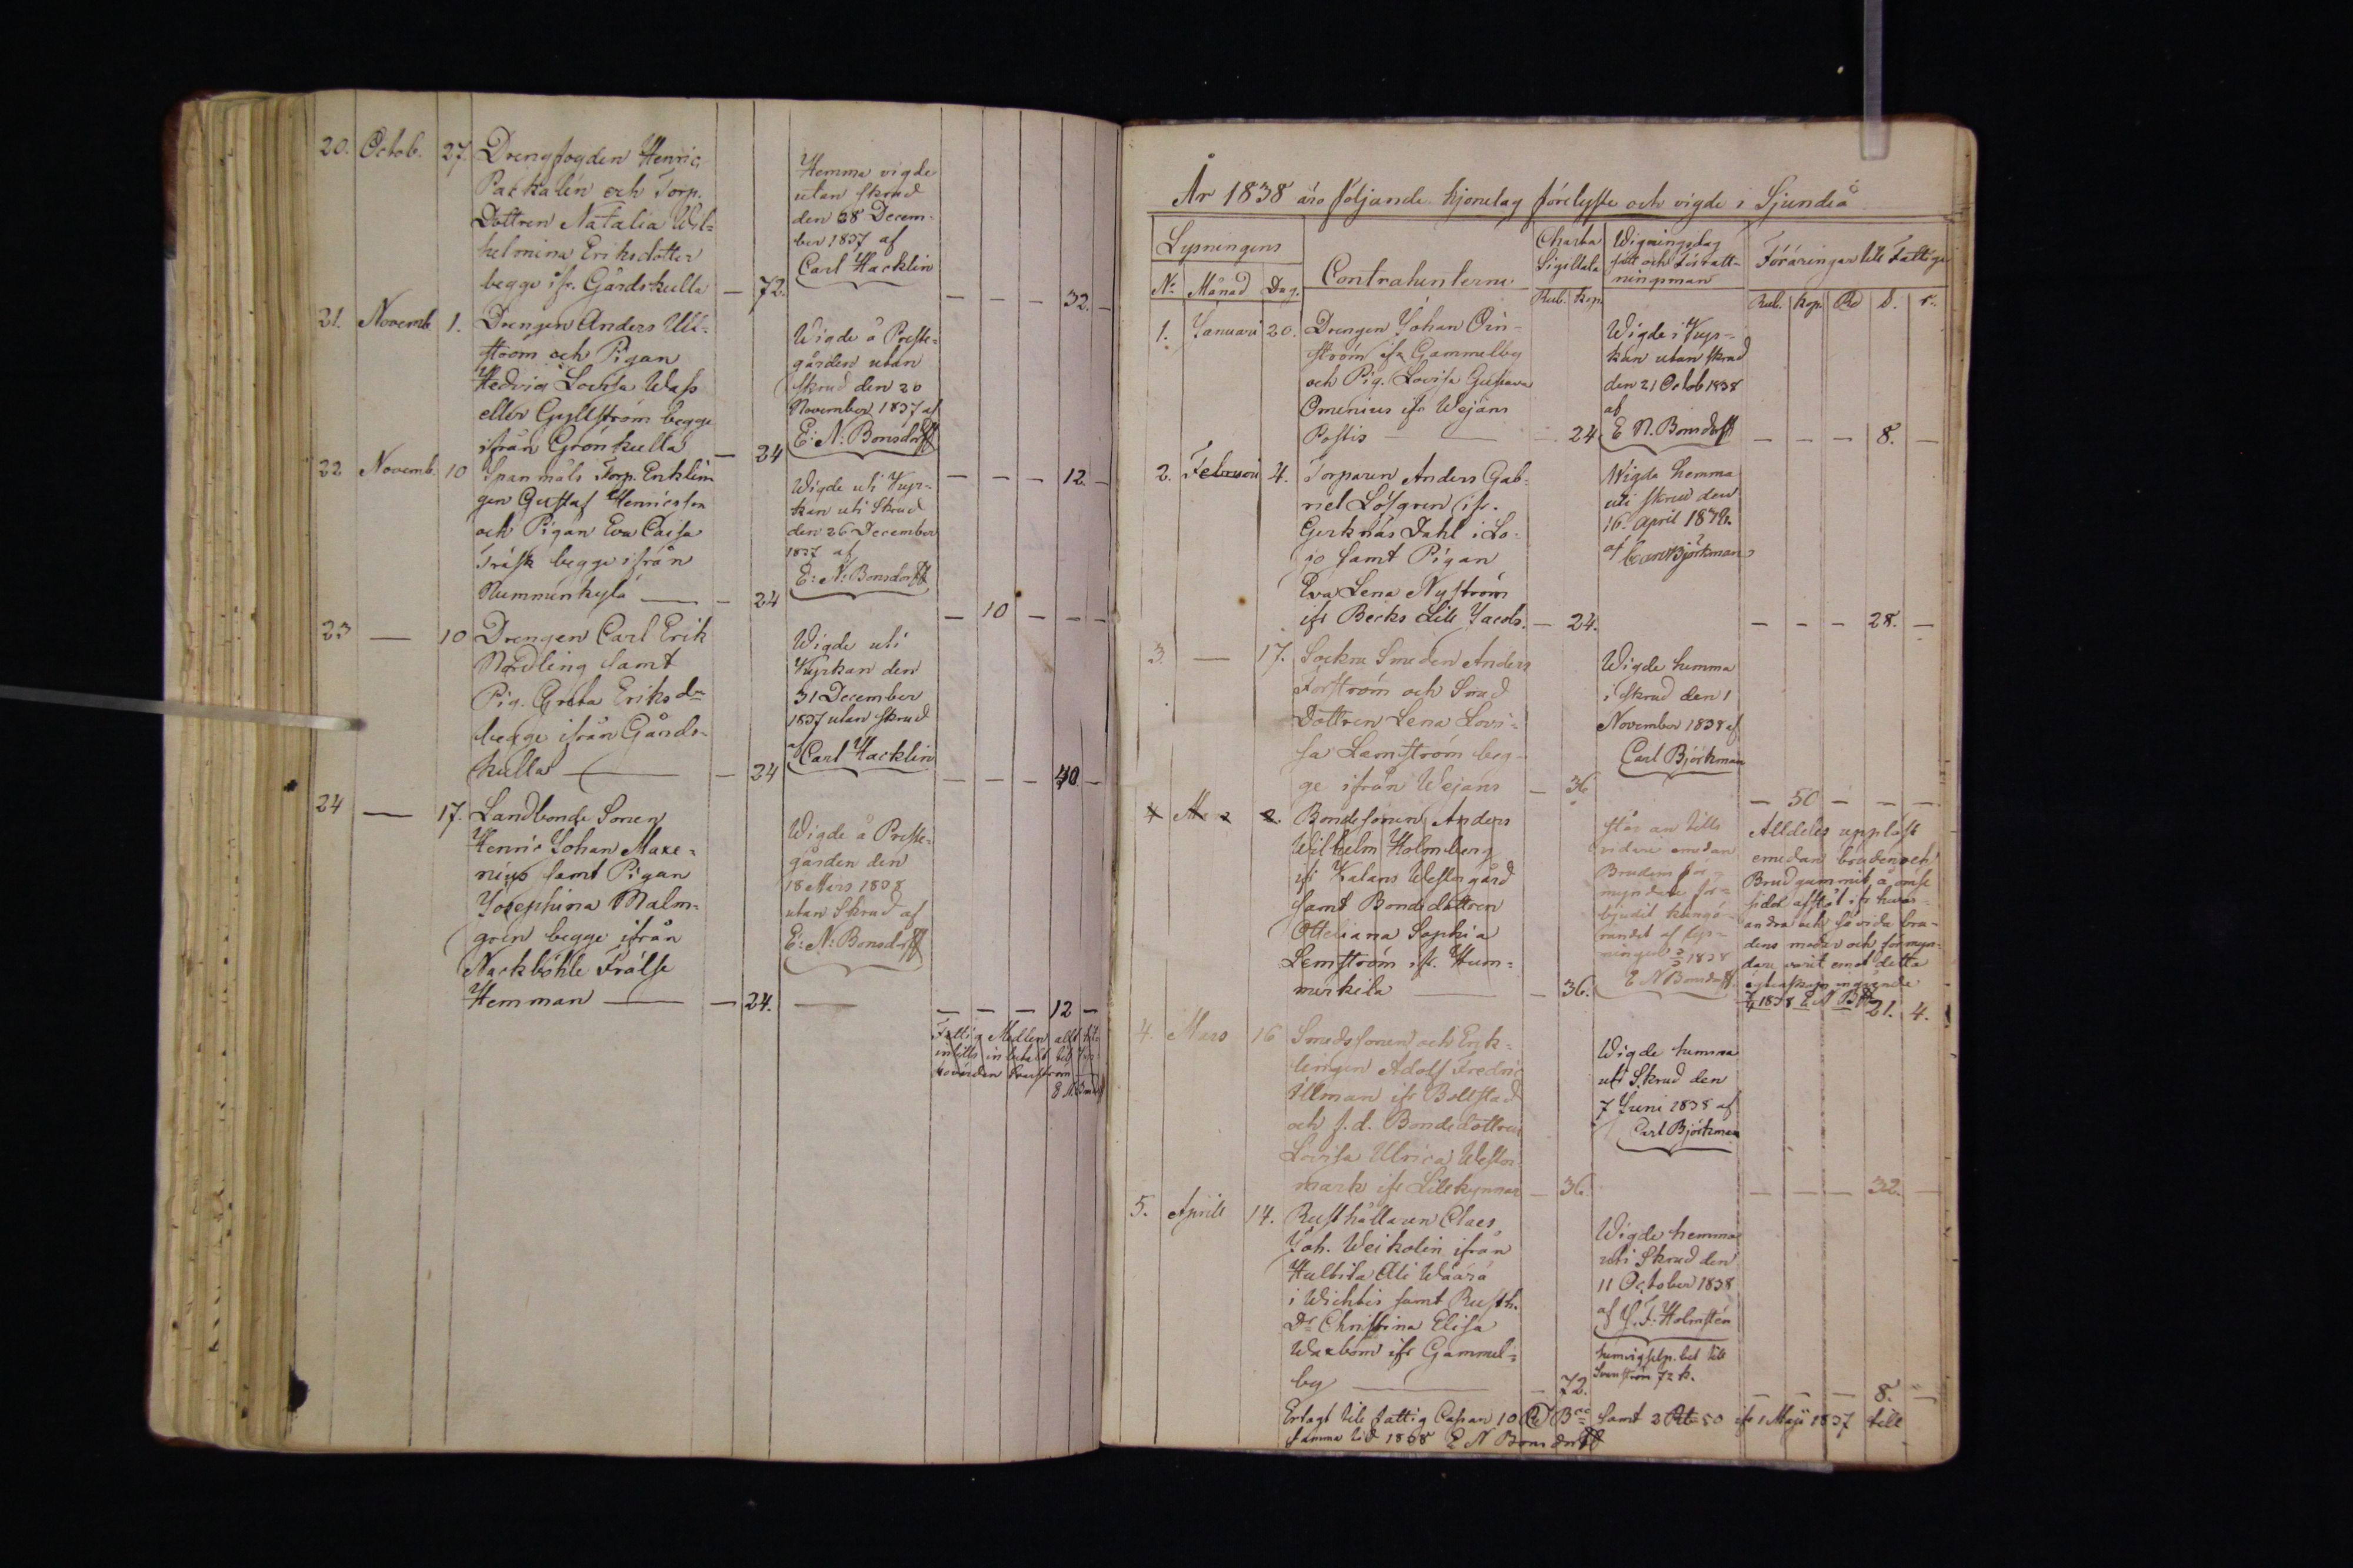 20. Octob. 27. Drengfogden Henric
Packalén och Torp.
Dottren Natalia Wil=
helmina Eriksdotter
begge ifr. Gårdskulla — 72.
Hemma vigde
utan skrud
den 28 Decem-
ber 1837 af
Carl Hacklin
— — — 32. —
21. Novemb. 1. Drengen Anders Ull=
ström och Pigan
Hedvig Lovisa Wass
eller Gyllström begge
ifrån Grönkulla — 24
Wigde å Preste=
gården utan
skrud den 20
November 1837 af
E: N: Bonsdorff
— — — 12. —
22 Novemb. 10 Spanmåls Torp. Enklin
gen Gustaf Henricsson
och Pigan Eva Caisa
Träsk begge ifrån
Nummenkylä — — 24
Wigde uti Kyr-
kan uti Skrud
den 26 December
1837 af
E: N: Bonsdorff
— 10 — — —
23 — 10 Drengen Carl Erik
Nordling samt
Pig. Greta Eriksdr
begge ifrån Gårds-
kulla — — 24
Wigde uti
Kyrkan den
31 December
1837 utan skrud
af Carl Hacklin
— — — 40 —
24 — 17. Landbonde Sonen
Henric Johan Maxe-
nius samt Pigan
Josephina Malm-
gren begge ifrån
Nackböhle Frälse
Hemman — — 24. —
Wigde å Preste-
gården den
18 Mars 1838
utan Skrud af
E: N: Bonsdorff
— — — 12 —
Fattig Medlen allt hit
intills inbetalt till
E N Bonsdorff
År 1838 äro följande hjonelag förelyste och vigde i Sjundeå
Lysningens
No Månad Dag.
Contrahenterne
Charta
Sigillata
Rub. Kop.
Wigningsdag
sätt och Förrätt-
ningsman
Föräringar till Fattiga
Rub. Kop. Rd S. r.
1. Januari 20. Drengen Johan Örn-
ström ifr Gammelby
och Pig. Lovisa Gustava
Omenius ifr Wejans
Postis — — 24
Wigde i Kyr-
kan utan skrud
den 21 Octob 1838
af
E N. Bonsdorff
— — — 8. —
2. Februari 4. Torparen Anders Gab-
riel Löfgren ifr.
Gerknäs Dahl i Lo-
jo samt Pigan
Eva Lena Nyström
ifr Becks Lill Jacobs. — 24.
Wigda hemma
uti skrud den
16. April 1838.
af Carl Björkman
— — — 28. —
3. — 17. Sockne Smeden Anders
Forström och Smed
Dottren Lena Lovi-
sa Lemström beg-
ge ifrån Wejans — 36
Wigde hemma
i skrud den 1
November 1838 af
Carl Björkman
— 50 — — —
Bondesonen Anders
Wilhelm Holmberg
ifr Kalans Westergård
samt Bondedottren
Otteliana Sophia
Lemström ifr. Hum-
merkila — — 36.
står an tills
vidare emedan
Brudens för-
myndare för-
bjudit kungö-
randet af lys-
ningen 1838
E N Bonsdorff
Alldeles upplöst
emedan bruden och
Brudgummen å ömse
sidor afstått ifr hvar-
andra och så vida bru-
dens moder och förmyn-
dare varit emot detta
ägtenskaps ingående
1838 E N Bff 21. 4.
4. Mars 16 Smedssonen och Enk-
lingen Adolf Fredric
Ullman ifr Bollstad
och f.d. Bondedottren
Lovisa Ulrica Wester-
mark ifr Lillkynnar — 36.
Wigde hemma
uti Skrud den
7 Juni 1838 af
Carl Björkman
— — — 32. —
5. Aprill 14. Rusthållaren Claes
Joh. Weikolin ifrån
Hulttila Ali Wäärä
i Wichtis samt Rusth.
Dr Christina Elisa
Waxbom ifr Gammel-
by — — 72.
Wigde hemma
uti Skrud den
11 October 1838
af J. F. Holmstén
hemvigselp. bet till
Svenström 72 k.
— — — 8. —
Erlagt till fattig Cassan 10 Rd Bco samt 2 50 ifr 1 Maji 1837 till
samma tid 1838 E N Bonsdorff